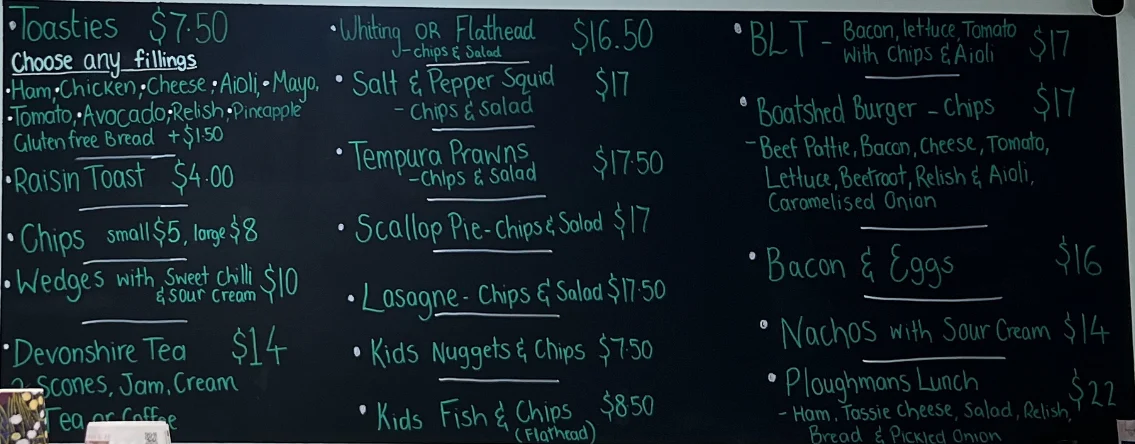 •Toasties $7.50
Choose any fillings
•Ham,•Chicken,•Cheese,•Aioli,•Mayo,
•Tomato,•Avocado,•Relish,•Pineapple
Gluten free Bread +$1.50
•Raisin Toast $4.00
•Chips small $5, large $8
•Wedges with Sweet Chilli $10
& Sour Cream
•Devonshire Tea $14
Scones, Jam, Cream
Tea or Coffee
•Whiting OR Flathead $16.50
-chips & Salad
•Salt & Pepper Squid $17
-Chips & Salad
•Tempura Prawns $17.50
-Chips & Salad
•Scallop Pie-Chips & Salad $17
•Lasagne-Chips & Salad $17.50
•Kids Nuggets & Chips $7.50
•Kids Fish & Chips $8.50
(Flathead)
•BLT - Bacon, lettuce, Tomato $17
with Chips & Aioli
•Boatshed Burger - Chips $17
-Beef Pattie, Bacon, Cheese, Tomato,
Lettuce, Beetroot, Relish & Aioli,
Caramelised Onion
•Bacon & Eggs $16
•Nachos with Sour Cream $14
•Ploughmans Lunch $22
-Ham, Tassie Cheese, Salad, Relish,
Bread & Pickled Onion